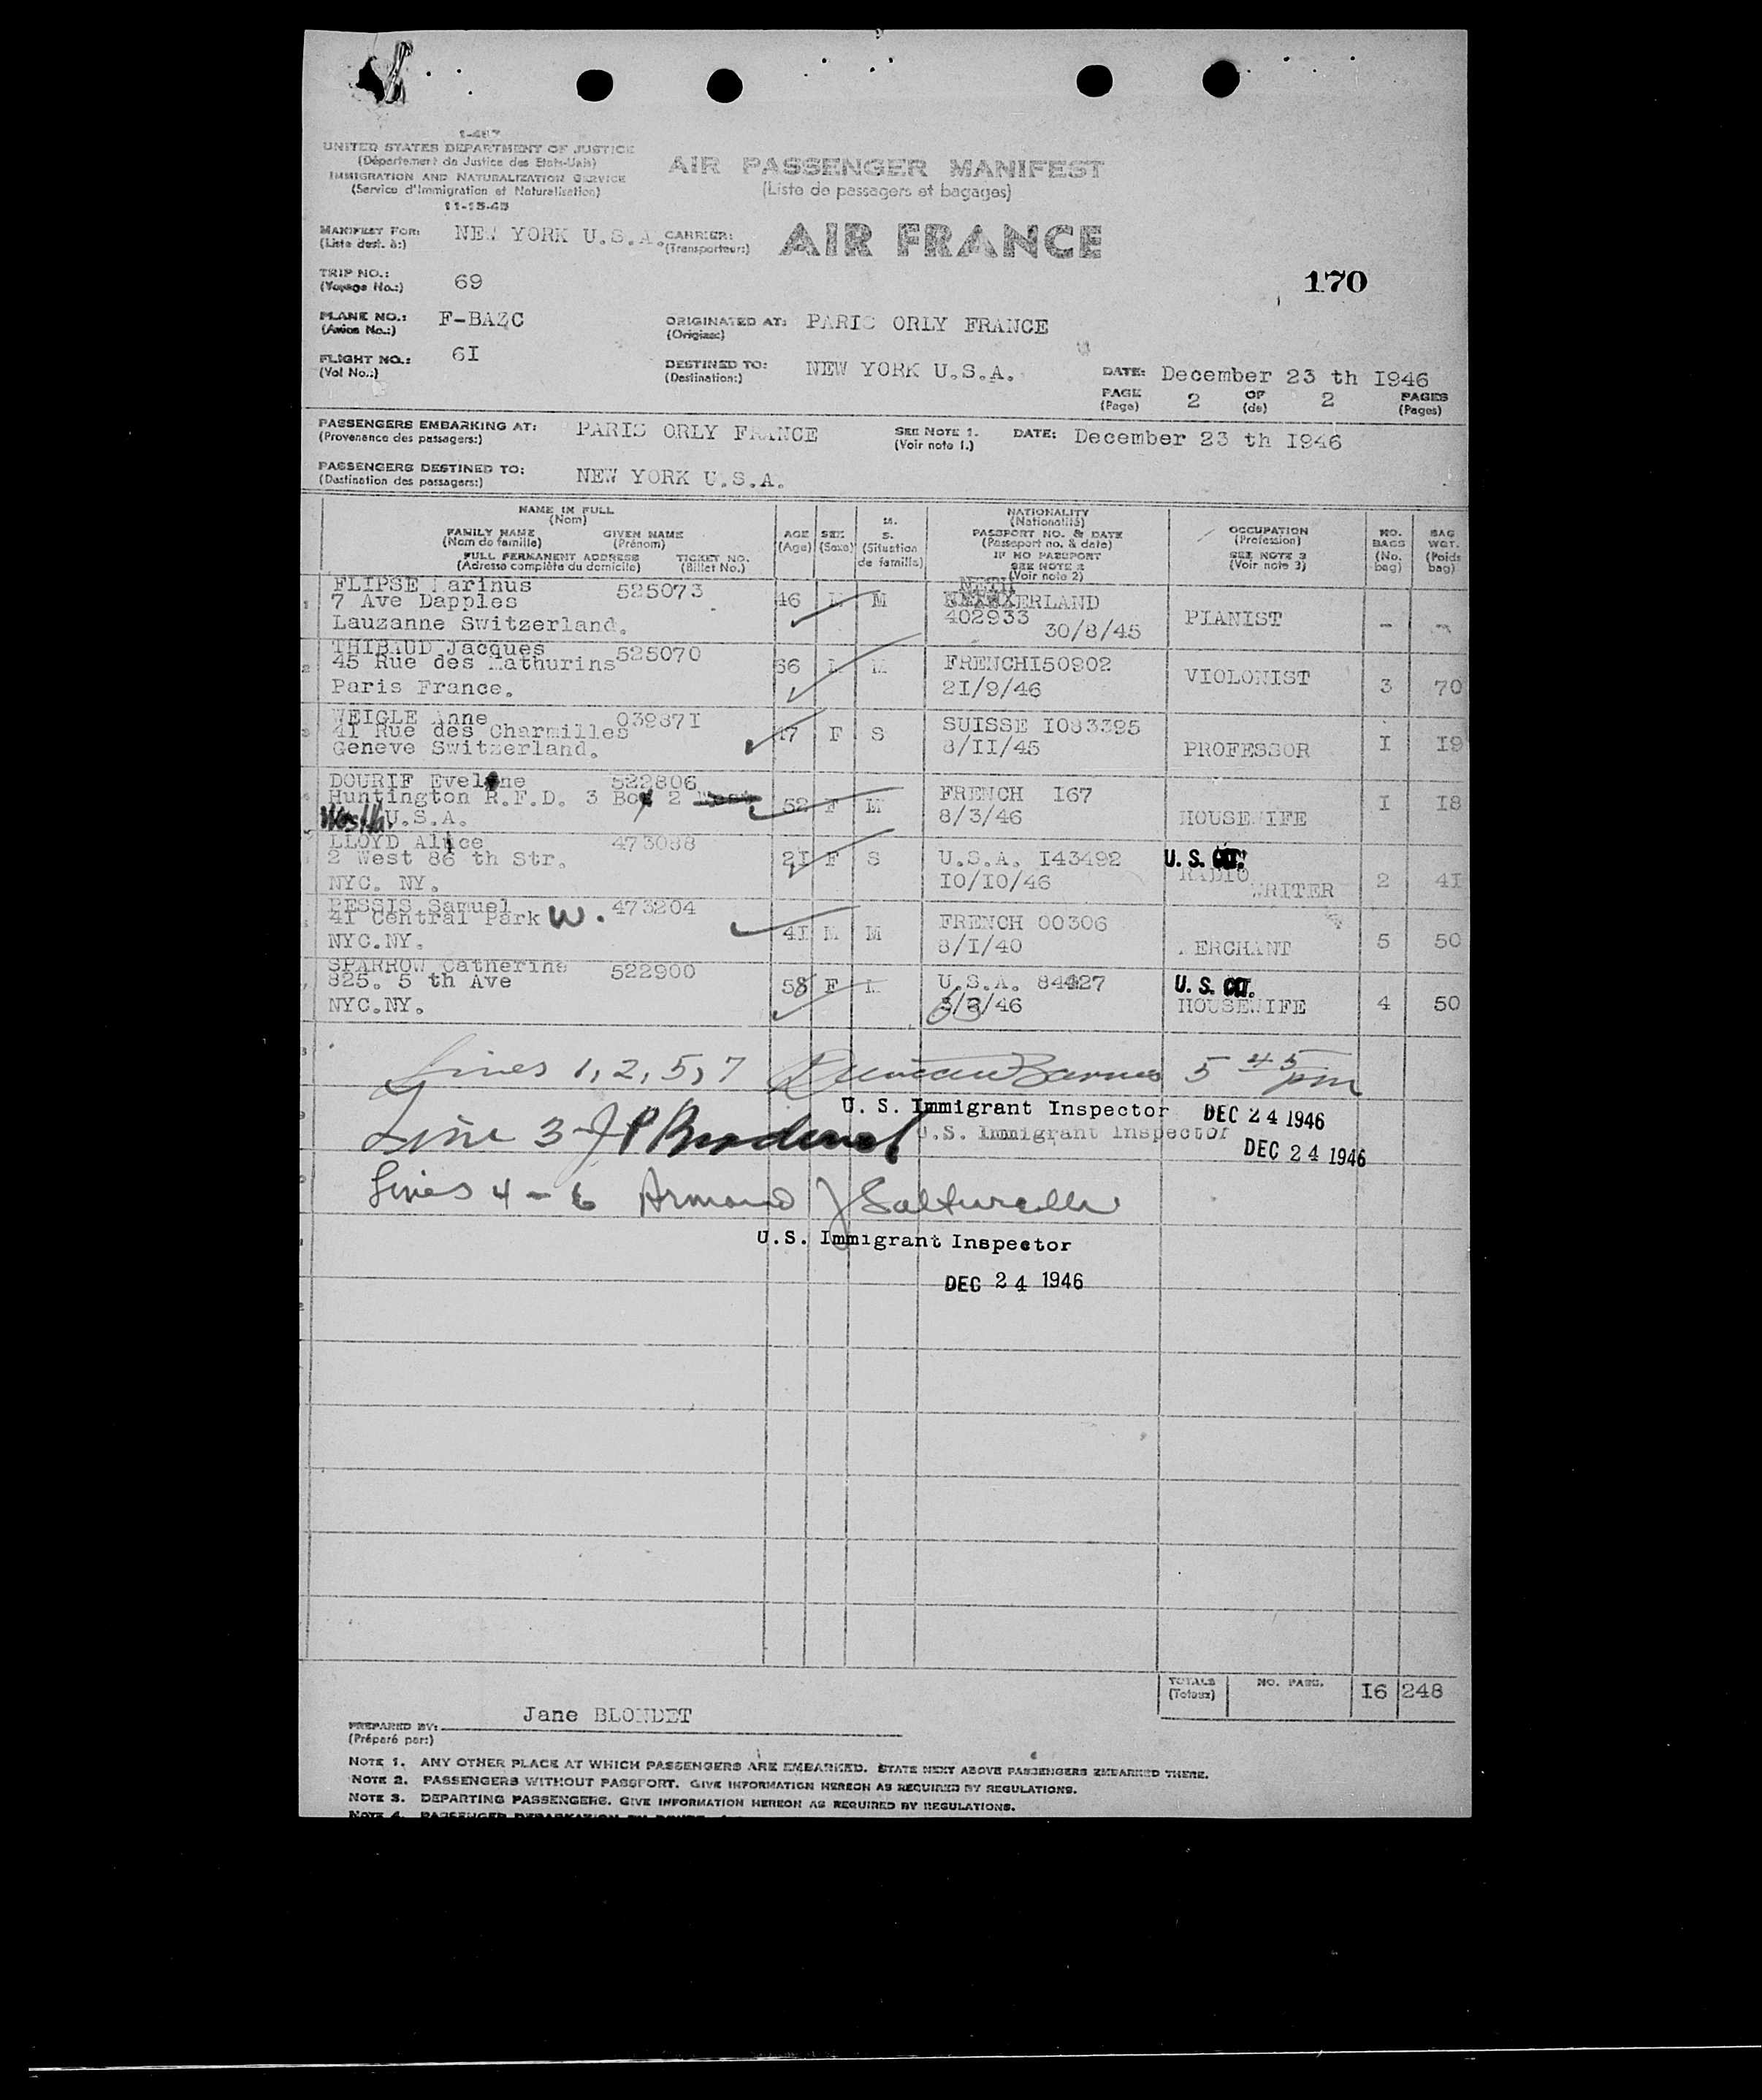 1-487
UNITED STATES DEPARTMENT OF JUSTICE
(Département de Justice des Etats-Unis)
IMMIGRATION AND NATURALIZATION SERVICE
(Service d'Immigration et Naturalisation)
11-15-45
AIR PASSENGER MANIFEST
(Liste de passagers et bagages)
MANIFEST FOR: NEW YORK U.S.A.
(Liste dest. à:)
CARRIER: AIR FRANCE
(Transporteur:)
TRIP NO.: 69
(Voyage No.:)
170
PLANE NO.: F-BAZC
(Avion No.:)
ORIGINATED AT: PARIS ORLY FRANCE
(Origine:)
FLIGHT NO.: 6I
(Vol No.:)
DESTINED TO: NEW YORK U.S.A.
(Destination:)
DATE: December 23 th I946
PAGE 2 OF 2 PAGES
(Page) (de) (Pages)
PASSENGERS EMBARKING AT: PARIS ORLY FRANCE
(Provenance des passagers:)
SEE NOTE 1.
(Voir note 1.)
DATE: December 23 th I946
PASSENGERS DESTINED TO: NEW YORK U.S.A.
(Destination des passagers:)
NAME IN FULL
(Nom)
FAMILY NAME GIVEN NAME
(Nom de famille) (Prénom)
FULL PERMANENT ADDRESS TICKET NO.
(Adresse complète du domicile) (Billet No.)
AGE
(Age)
SEX
(Sexe)
M.
S.
(Situation
de famille)
NATIONALITY
(Nationalité)
PASSPORT NO. & DATE
(Passeport no. & date)
IF NO PASSPORT
SEE NOTE 2
(Voir note 2)
OCCUPATION
(Profession)
SEE NOTE 3
(Voir note 3)
NO.
BAGS
(No.
bag)
BAG
WGT.
(Poids
bag)
1 FLIPSE Marinus 525073
7 Ave Dapples 46 M M NETHERLAND
Lauzanne Switzerland. 402933 30/8/45 PIANIST - -
2 THIBAUD Jacques 525070
45 Rue des Mathurins 66 M M FRENCHI50902 VIOLONIST
Paris France. 2I/9/46 3 70
3 WEIGLE Anne 03987I
4I Rue des Charmilles 47 F S SUISSE I083395
Geneve Switzerland. 8/II/45 PROFESSOR I I9
DOURIF Evelyne 522806
Huntington R.F.D. 3 Box 2 52 F M FRENCH I67 I I8
U.S.A. 8/3/46 HOUSEWIFE
LLOYD Alice 473088
2 West 86 th Str. 2I F S U.S.A. I43492 U. S. CIT.
NYC. NY. IO/IO/46 RADIO WRITER 2 4I
BESSIS Samuel 473204
4I Central Park W. 4I M M FRENCH 00306
NYC.NY. 8/I/40 MERCHANT 5 50
SPARROW Catherine 522900
825. 5 th Ave 58 F M U.S.A. 84427 U. S. CIT.
NYC.NY. /46 HOUSEWIFE 4 50
Lines 1, 2, 5, 7 Duncan Barnes 5 45 pm
U. S. Immigrant Inspector DEC 24 1946
Line 3 - J P
U.S. Immigrant Inspector
DEC 24 1946
Lines 4 - 6 Armand J Salturelli
U.S. Immigrant Inspector
DEC 24 1946
TOTALS NO. PASS. I6 248
(Totaux)
Jane BLONDET
PREPARED BY:
(Préparé par:)
NOTE 1. ANY OTHER PLACE AT WHICH PASSENGERS ARE EMBARKED. STATE NEXT ABOVE PASSENGERS EMBARKED THERE.
NOTE 2. PASSENGERS WITHOUT PASSPORT. GIVE INFORMATION HEREON AS REQUIRED BY REGULATIONS.
NOTE 3. DEPARTING PASSENGERS. GIVE INFORMATION HEREON AS REQUIRED BY REGULATIONS.
NOTE 4.